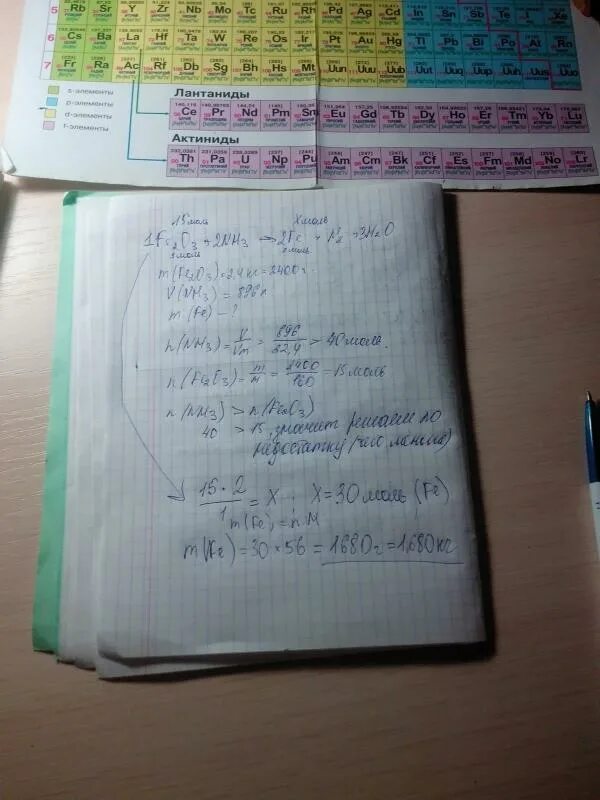 5 Rb Sr Y Zr Nb Mo Tc Ru Rh Pd Ag Cd In Sn Sb Te I Xe
6 Cs Ba La Hf Ta W Re Os Ir Pt Au Hg Tl Pb Bi Po At Rn
7 Fr Ra Ac Rf Db Sg Bh Hs Mt Uun Uuu Uub Uut Uuq Uup Uuh Uus Uuo
s-элементы
p-элементы
d-элементы
f-элементы
Лантаниды
Ce Pr Nd Pm Sm Eu Gd Tb Dy Ho Er Tm Yb Lu
Актиниды
Th Pa U Np Pu Am Cm Bk Cf Es Fm Md No Lr
15 моль X моль
1Fe2O3 + 2NH3 → 2Fe + N2 + 3H2O
1 моль 2 моль
m(Fe2O3) = 2,4 кг = 2400 г
V(NH3) = 896 л
m(Fe) - ?
n(NH3) = V/Vm = 896/22,4 = 40 моль.
n(Fe2O3) = m/M = 2400/160 = 15 моль
n(NH3) > n(Fe2O3)
40 > 15, значит решаем по
недостатку (чего меньше)
15·2/1 = X ; X = 30 моль (Fe)
m(Fe) = n·M
m(Fe) = 30 × 56 = 1680 г = 1,680 кг